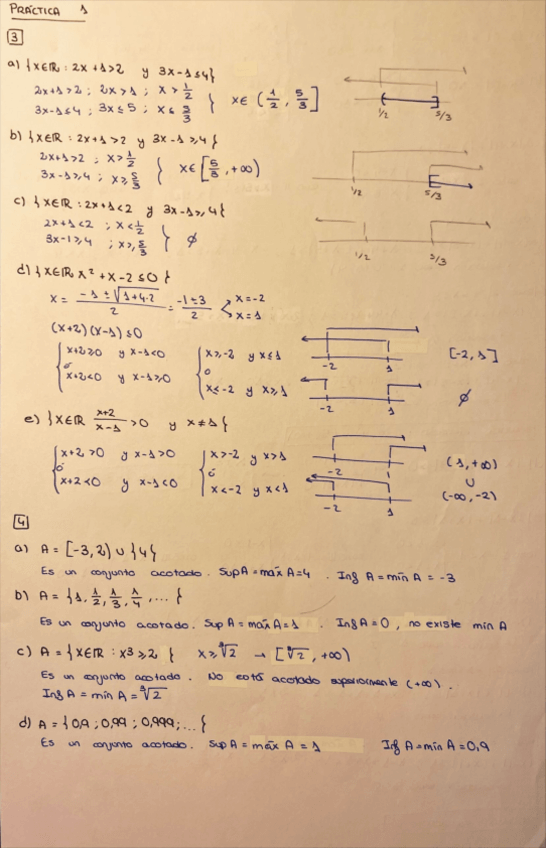 PRÁCTICA 1
3
a) {x∈ℝ : 2x+1>2 y 3x-1≤4}
2x+1>2 ; 2x>1 ; x>1/2
3x-1≤4 ; 3x≤5 ; x≤5/3 } x∈ (1/2, 5/3]
1/2 5/3
b) {x∈ℝ : 2x+1>2 y 3x-1≥4}
2x+1>2 ; x>1/2
3x-1≥4 ; x≥5/3 } x∈[5/3, +∞)
1/2 5/3
c) {x∈ℝ : 2x+1<2 y 3x-1≥4}
2x+1<2 ; x<1/2
3x-1≥4 ; x≥5/3 } ∅
1/2 5/3
d) {x∈ℝ x²+x-2≤0}
x = (-1±√(1+4·2))/2 = (-1±3)/2 < x=-2 x=1
(x+2)(x-1)≤0
{ x+2≥0 y x-1<0 { x≥-2 y x≤1 -2 1 [-2,1]
ó o
x+2<0 y x-1≥0 x<-2 y x≥1 -2 1 ∅
e) {x∈ℝ (x+2)/(x-1) >0 y x≠1}
{ x+2>0 y x-1>0 { x>-2 y x>1 -2 1 (1,+∞)
ó ó ∪
x+2<0 y x-1<0 x<-2 y x<1 -2 1 (-∞,-2)
4
a) A = [-3,2) ∪ {4}
Es un conjunto acotado. Sup A = máx A = 4 . Inf A = mín A = -3
b) A = {1, 1/2, 1/3, 1/4, ...}
Es un conjunto acotado. Sup A = máx A = 1 . Inf A = 0 , no existe mín A
c) A = {x∈ℝ : x³≥2, } x≥∛2 → [∛2, +∞)
Es un conjunto acotado. No está acotado superiormente (+∞).
Inf A = mín A = ∛2
d) A = {0,9 ; 0,99 ; 0,999 ; ...}
Es un conjunto acotado. Sup A = máx A = 1 Inf A = mín A = 0,9